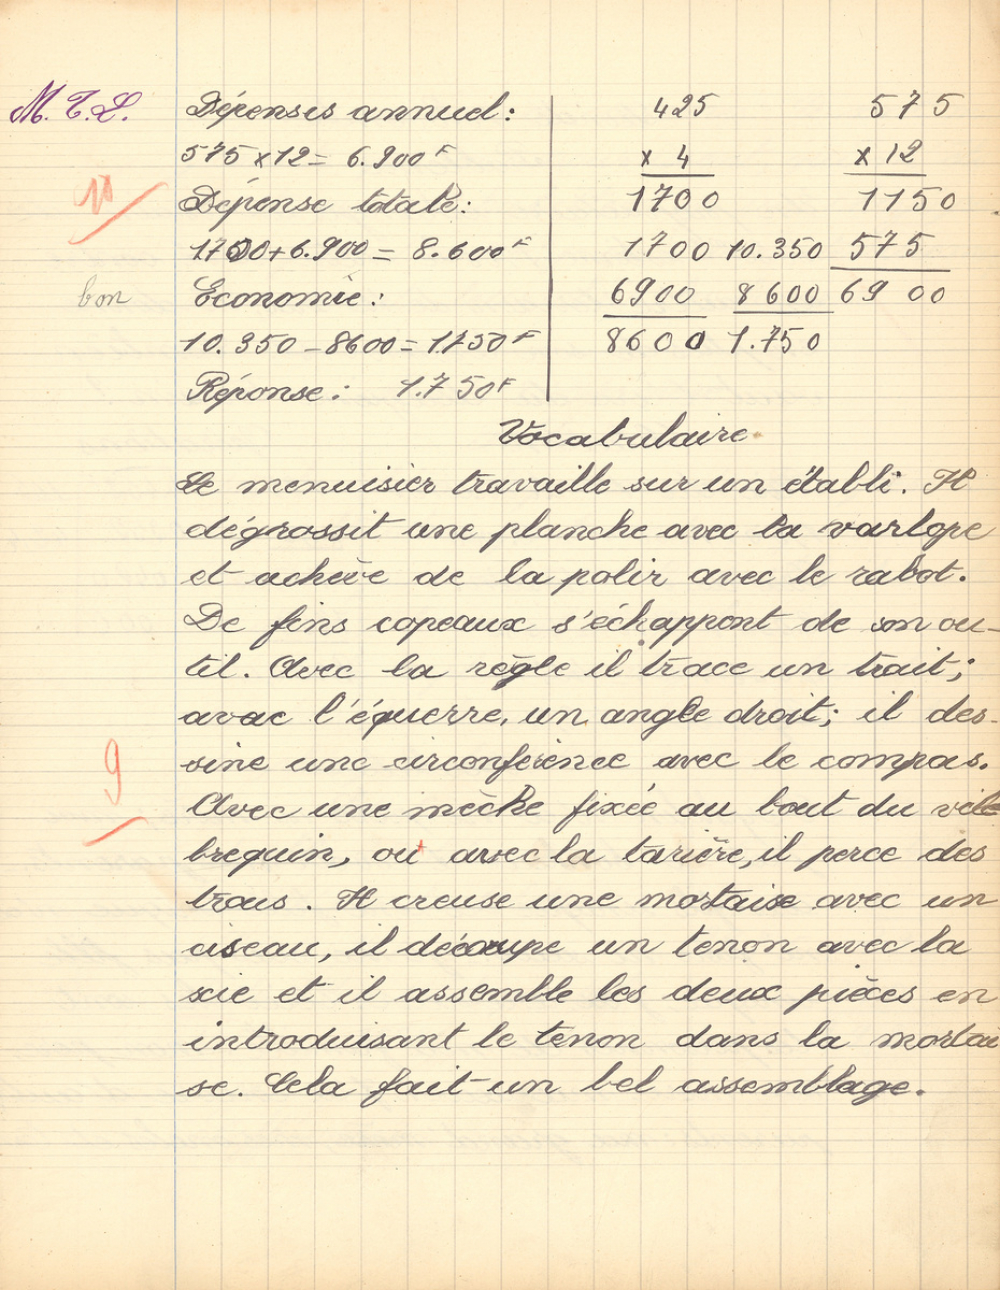 M. T. L.
Dépenses annuel:
575 x 12 = 6.900 F
Dépense totale:
1700 + 6.900 = 8.600 F
bon
Economie:
10.350 - 8600 = 1.750 F
Réponse: 1.750 F
425 575
x 4 x 12
1700 1150
1700 10.350 575
6900 8600 6900
8600 1.750
Vocabulaire
Le menuisier travaille sur un établi. Il
dégrossit une planche avec la varlope
et achève de la polir avec le rabot.
De fins copeaux s'échappont de son ou-
til. Avec la règle il trace un trait;
avac l'équerre, un angle droit; il des-
sine une circonférence avec le compas.
9
Avec une mèche fixée au bout du vile
brequin, ou avec la tarière, il perce des
trous. Il creuse une mortaise avec un
ciseau, il découpe un tenon avec la
scie et il assemble les deux pièces en
introduisant le tenon dans la mortai
se. Cela fait un bel assemblage.